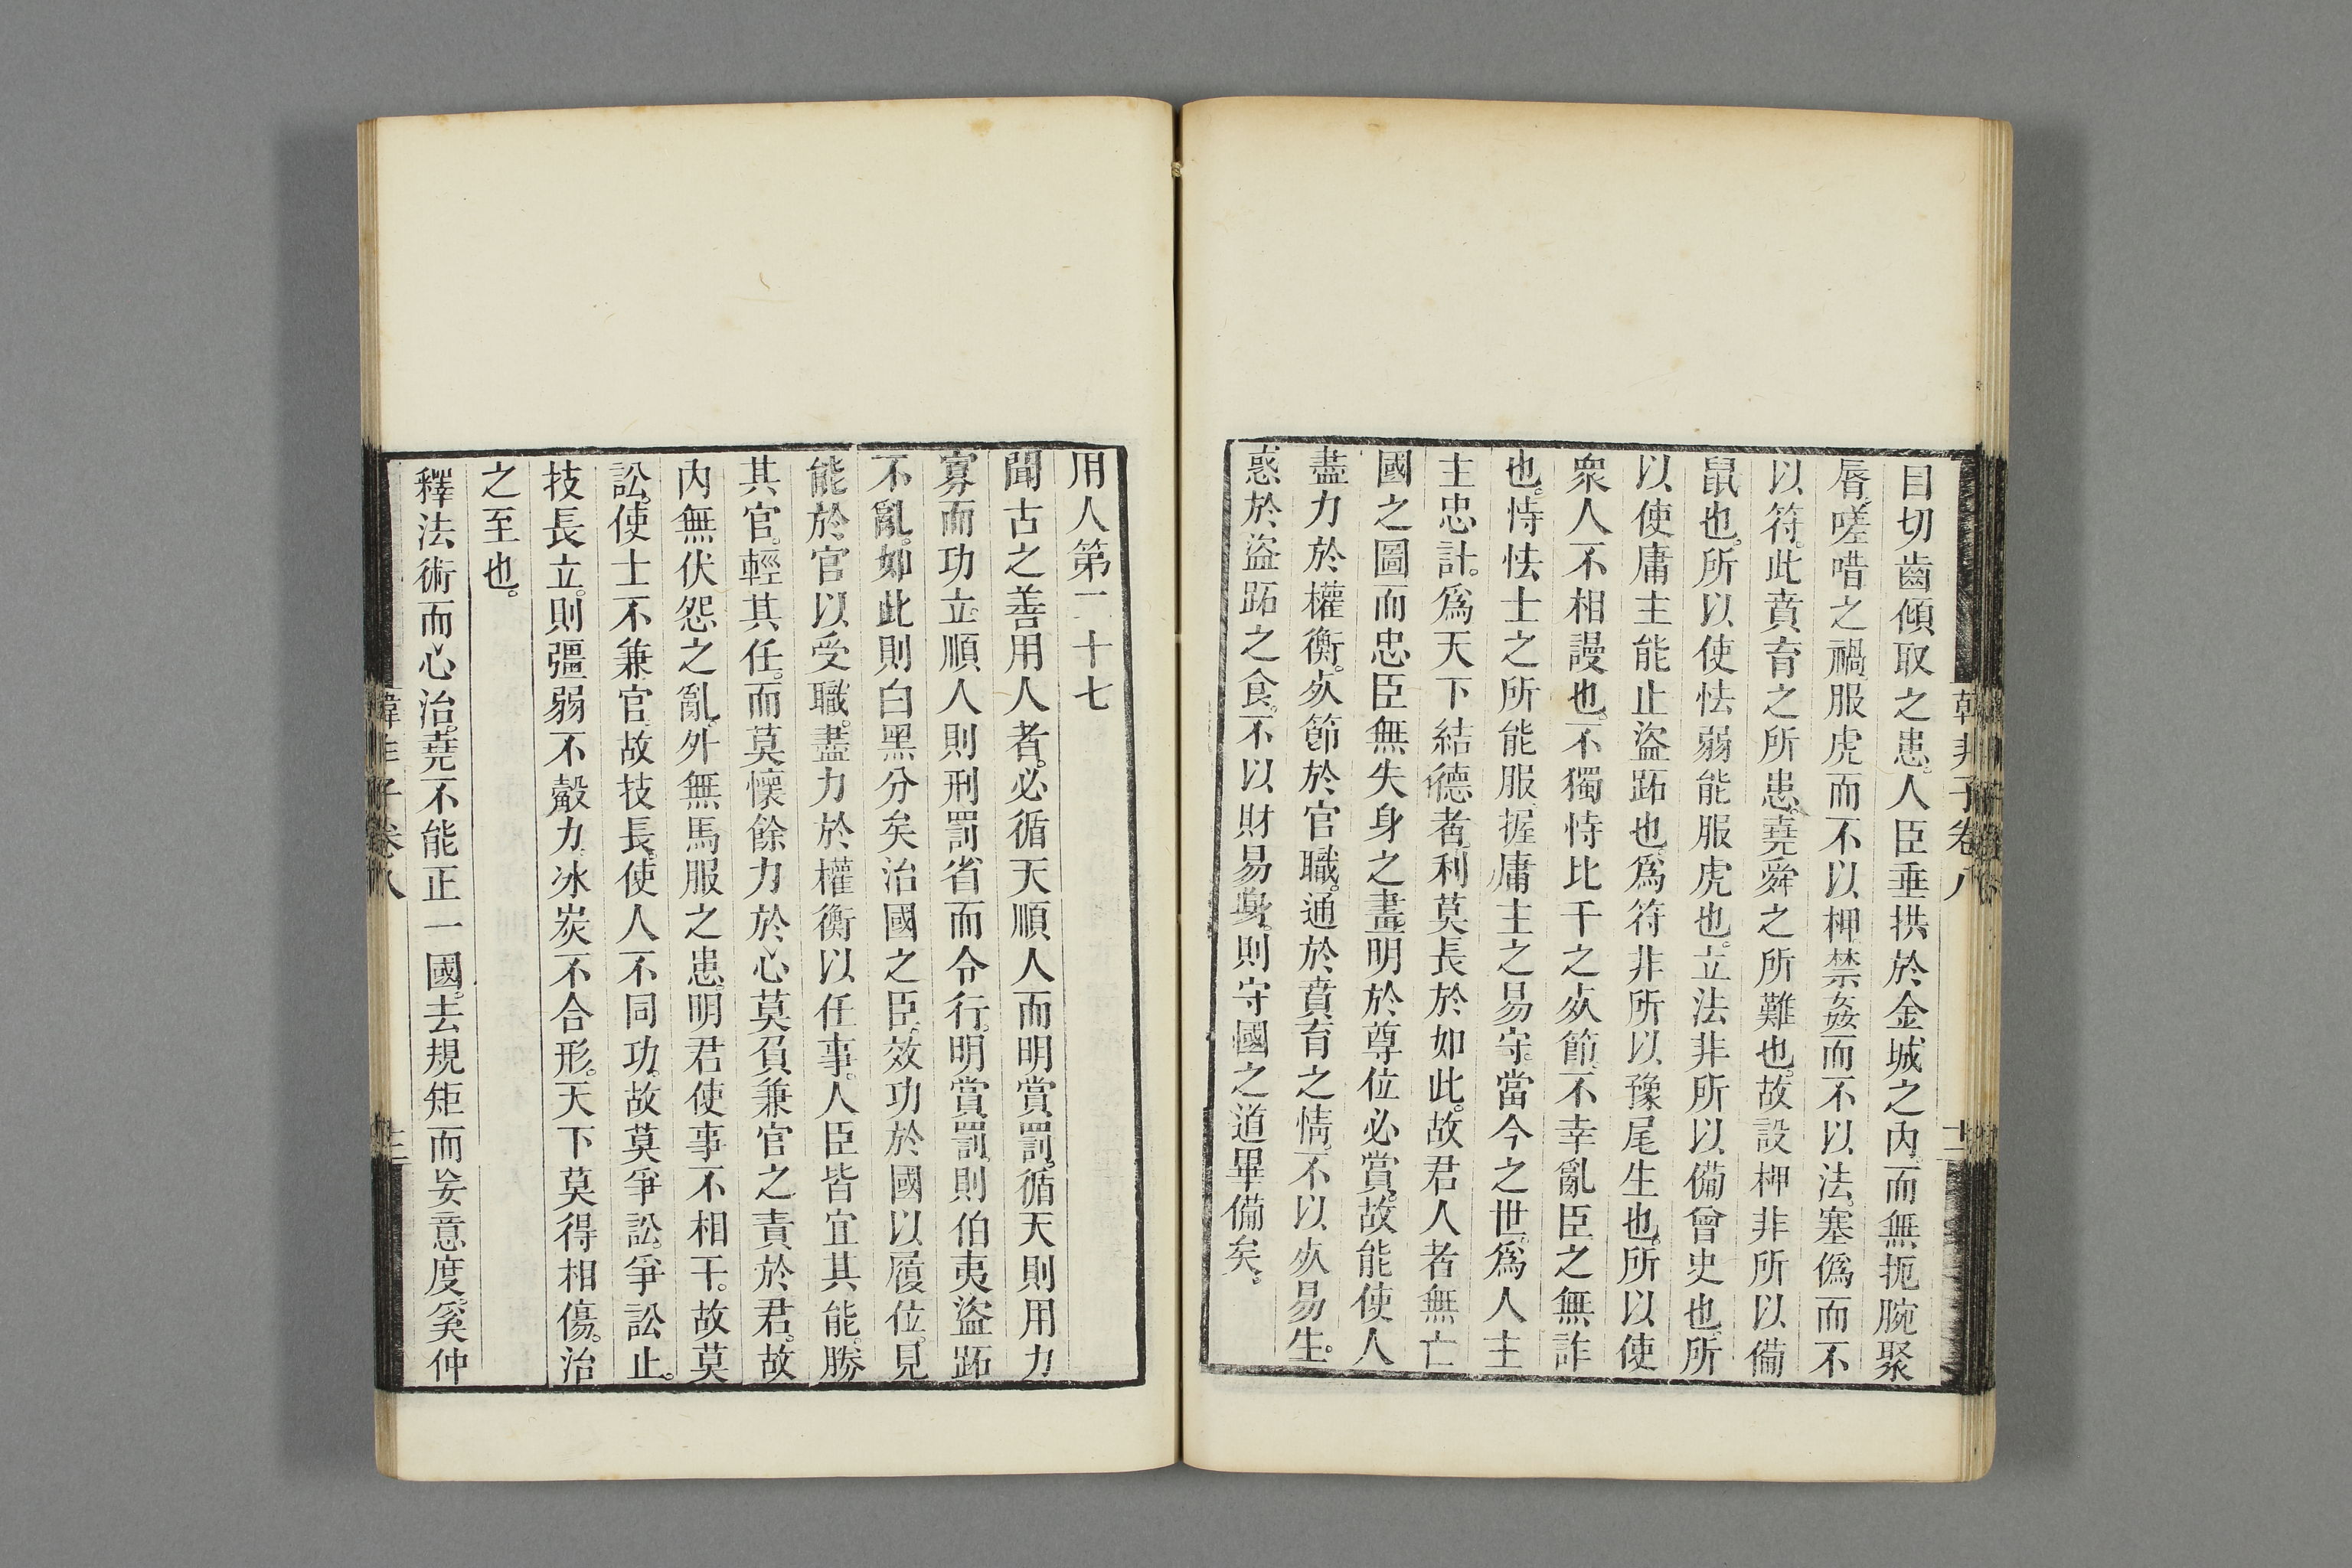 目切齒傾取之患。人臣垂拱於金城之內。而無扼腕聚
脣嗟唶之禍。服虎而不以柙。禁姦而不以法。塞僞而不
以符。此賁育之所患。堯舜之所難也。故設柙非所以備
鼠也。所以使怯弱能服虎也。立法非所以備曾史也。所
以使庸主能止盜跖也。爲符非所以豫尾生也。所以使
衆人不相謾也。不獨恃比干之死節。不幸亂臣之無詐
也。恃怯士之所能服。握庸主之易守。當今之世。爲人主
主忠計。爲天下結德者。利莫長於如此。故君人者無亡
國之圖。而忠臣無失身之畫。明於尊位必賞。故能使人
盡力於權衡。死節於官職。通於賁育之情。不以死易生。
惑於盜跖之食。不以財易身。則守國之道畢備矣。
韓非子卷八
十二
用人第二十七
聞古之善用人者。必循天順人而明賞罰。循天則用力
寡而功立。順人則刑罰省而令行。明賞罰。則伯夷盜跖
不亂。如此則白黑分矣。治國之臣。效功於國以履位。見
能於官以受職。盡力於權衡以任事。人臣皆宜其能。勝
其官。輕其任。而莫懷餘力於心。莫負兼官之責於君。故
內無伏怨之亂。外無馬服之患。明君使事不相干。故莫
訟。使士不兼官。故技長。使人不同功。故莫爭訟。爭訟止。
技長立。則彊弱不觳力。冰炭不合形。天下莫得相傷。治
之至也。
釋法術而心治。堯不能正一國。去規矩而妄意度。奚仲